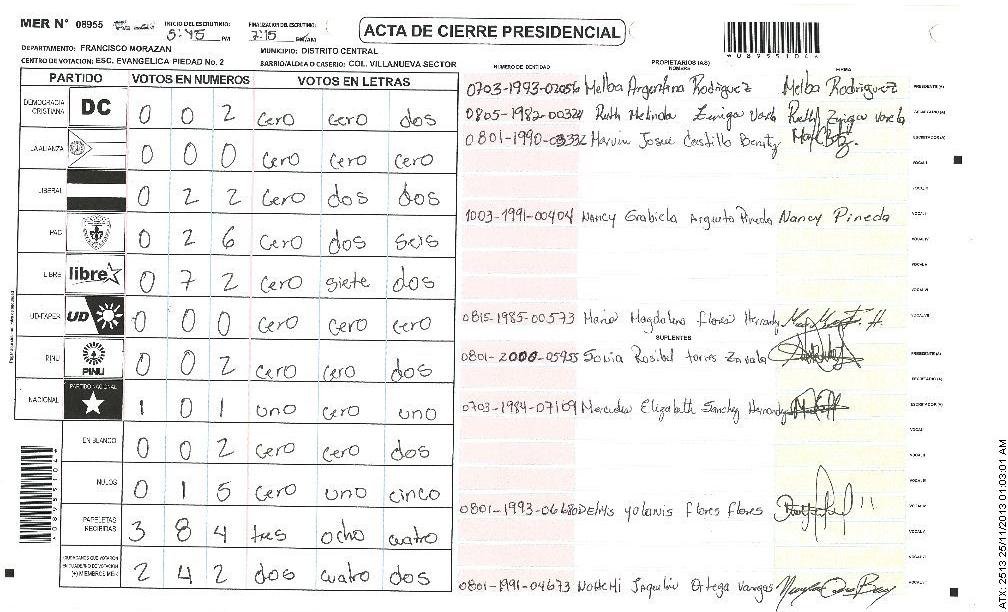 MER N° 08955 INICIO DEL ESCRUTINIO: 5:45 PM FINALIZACION DEL ESCRUTINIO: 7:15 PM/AM
ACTA DE CIERRE PRESIDENCIAL
DEPARTAMENTO: FRANCISCO MORAZAN MUNICIPIO: DISTRITO CENTRAL
CENTRO DE VOTACION: ESC. EVANGELICA PIEDAD No. 2 BARRIO/ALDEA O CASERIO: COL. VILLANUEVA SECTOR
PARTIDO VOTOS EN NUMEROS VOTOS EN LETRAS
DEMOCRACIA CRISTIANA DC 0 0 2 cero cero dos
LA ALIANZA 0 0 0 cero cero cero
LIBERAL 0 2 2 cero dos dos
PAC 0 2 6 cero dos seis
LIBRE libre 0 7 2 cero siete dos
UD-FAPER UD 0 0 0 cero cero cero
PINU PINU 0 0 2 cero cero dos
NACIONAL PARTIDO NACIONAL 1 0 1 uno cero uno
EN BLANCO 0 0 2 cero cero dos
NULOS 0 1 5 cero uno cinco
PAPELETAS RECIBIDAS 3 8 4 tres ocho cuatro
CIUDADANOS QUE VOTARON EN CUADERNO DE VOTACION (+) MIEMBROS MER 2 4 2 dos cuatro dos
NUMERO DE IDENTIDAD PROPIETARIOS (AS) NOMBRE FIRMA
0703-1993-02056 Melba Argentina Rodriguez Melba Rodriguez PRESIDENTE (A)
0805-1982-00324 Ruth Melinda Zuniga Varela SECRETARIO (A)
0801-1990-03332 Marvin Josue Castillo Benitz ESCRUTADOR (A)
VOCAL I
1003-1991-00404 Nancy Grabiela Argueta Pineda Nancy Pineda
VOCAL IV
0815-1985-00573 Maria Magdalena Flores Hernandy
SUPLENTES
0801-2000-05955 Sonia Rosibel torres Zavala PRESIDENTE (A)
SECRETARIO (A)
0703-1984-07109 Mercedes Elizabeth Sanchez Hernandy ESCRUTADOR (A)
0801-1993-06680 Delmis yolanis flores flores
0801-1991-04673 NOHEMI Jaquelin Ortega Vargas
08955104
ATX-2513 25/11/2013 01:03:01 AM